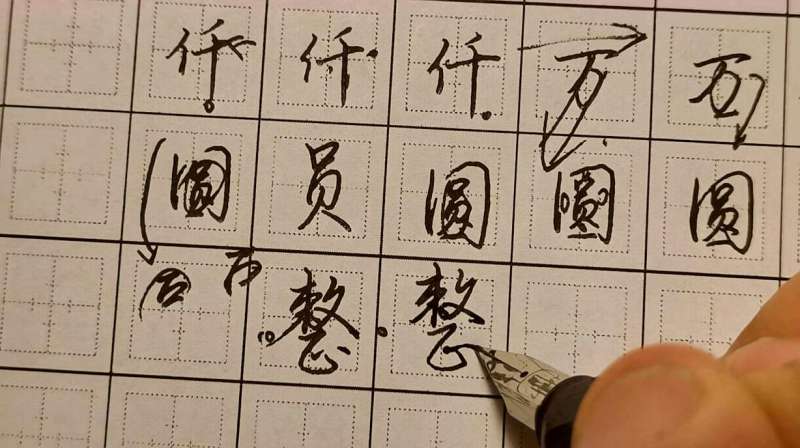 仟仟仟万万
圆员圆圆圆
整整